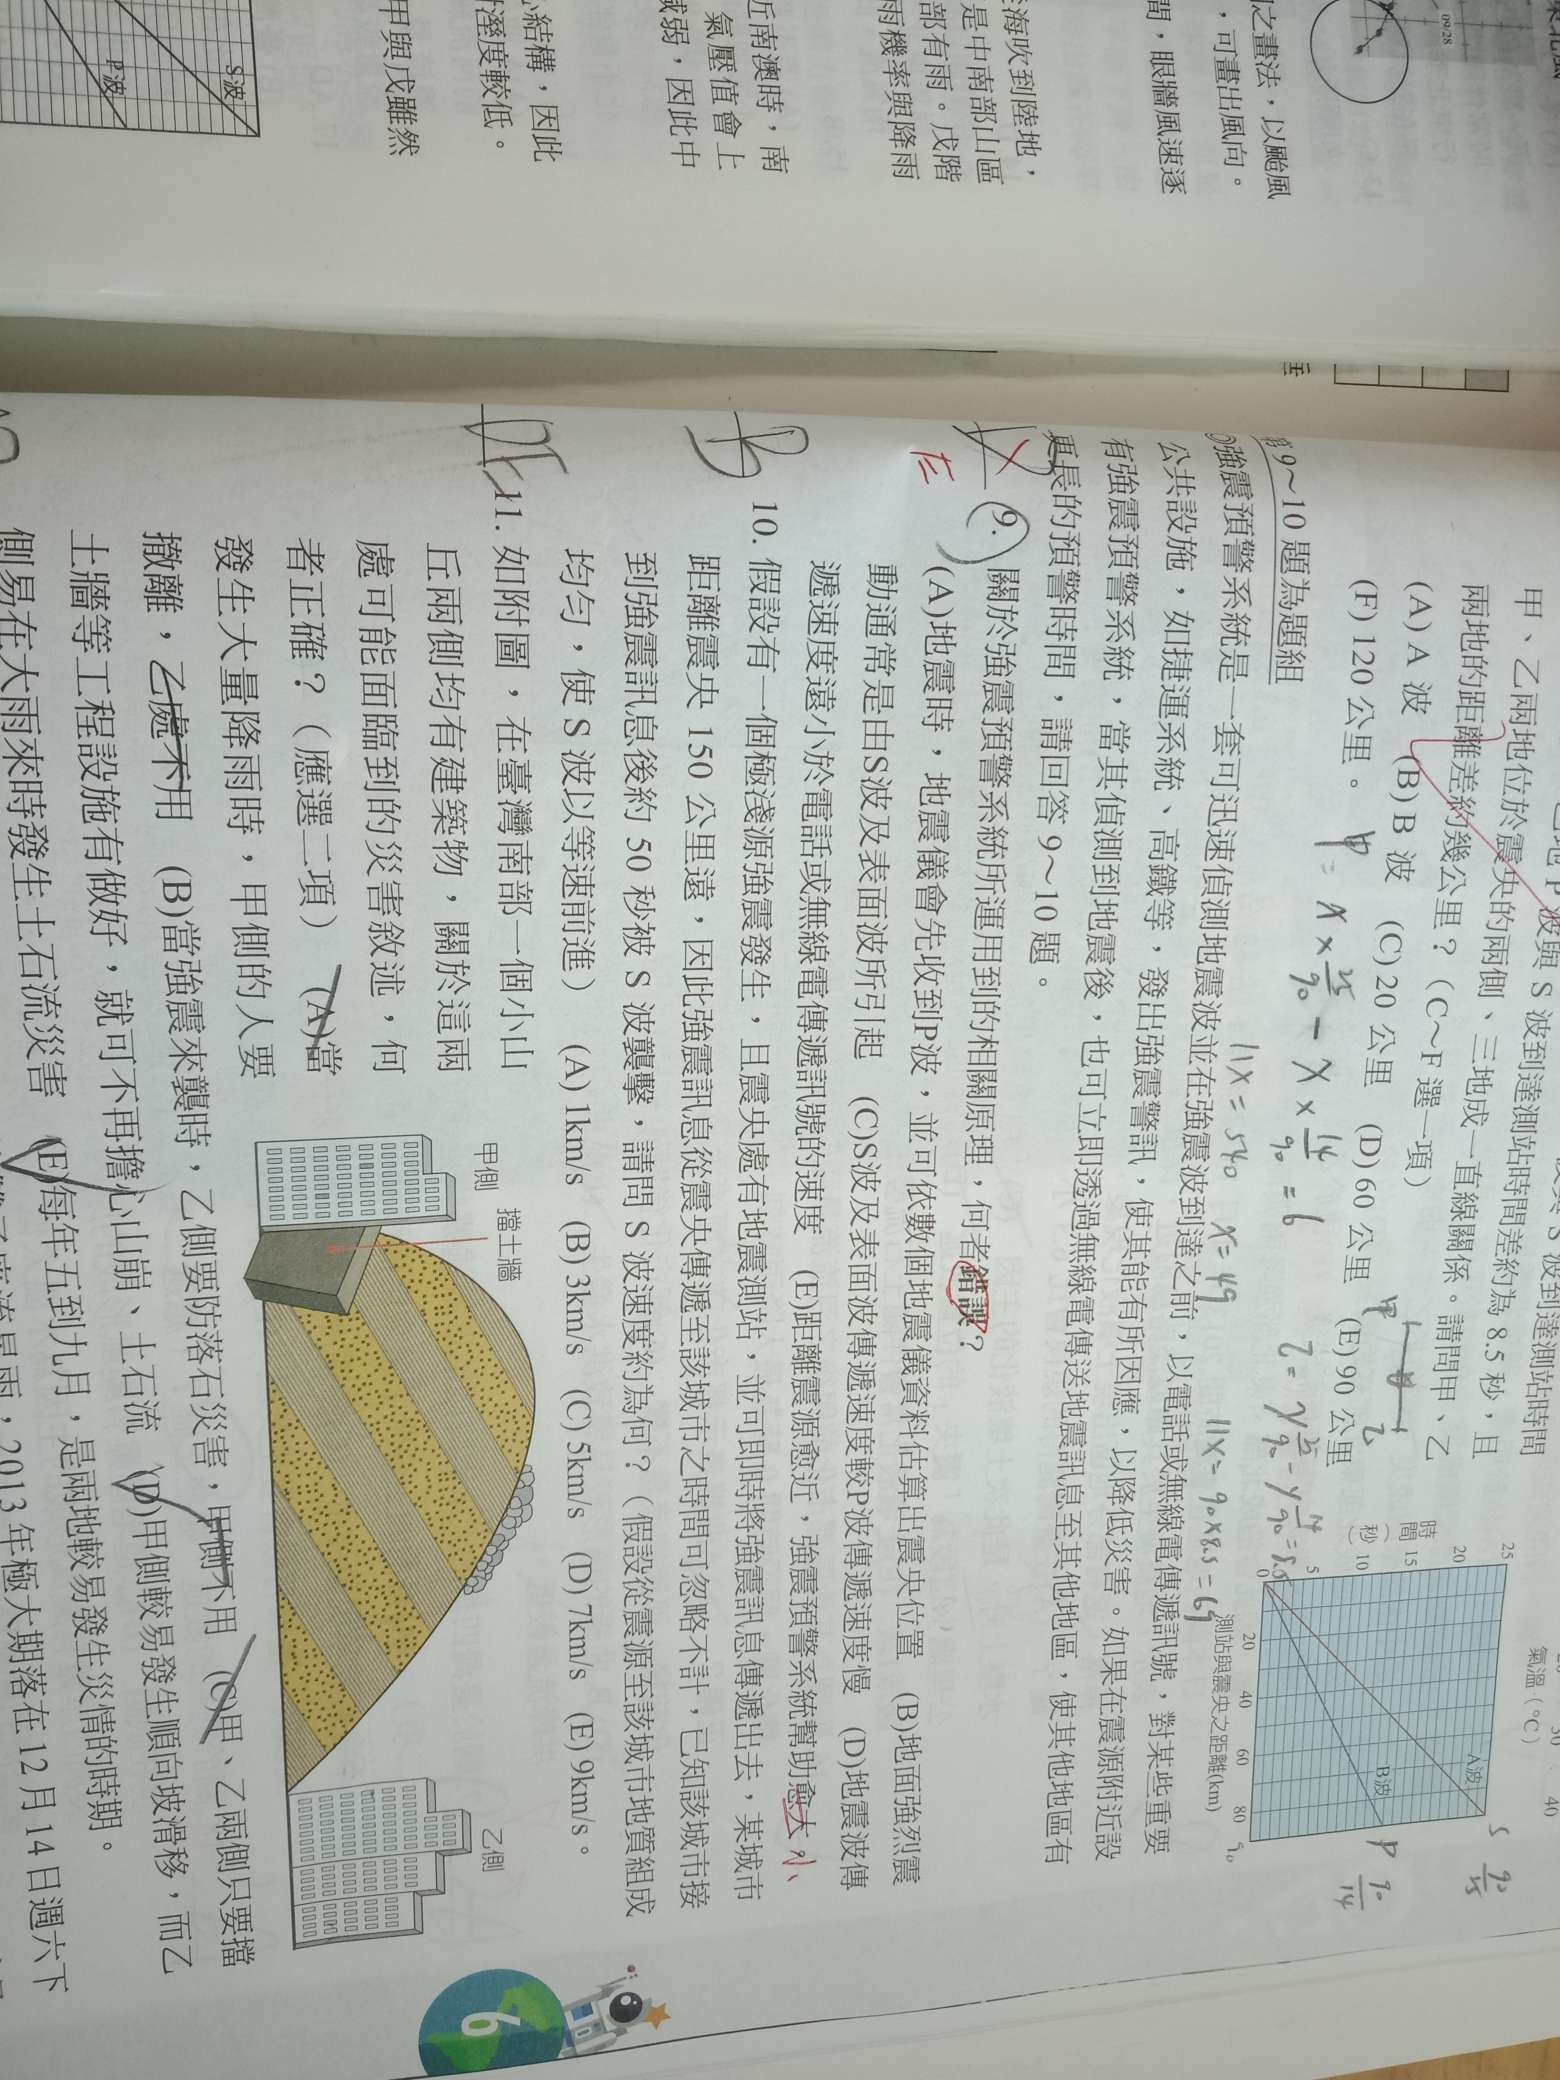 之畫法，以颱風
，可畫出風向。
間，眼牆風速逐
海吹到陸地，
是中南部山區
部有雨。戊階
雨機率與降雨
近南澳時，南
氣壓值會上
減弱，因此中
心結構，因此
溼度較低。
甲與戊雖然
S波
P波
09/28
波與 S 波到達測站時間
甲、乙兩地位於震央的兩側、三地成一直線關係。請問甲、乙
兩地的距離差約幾公里？（C～F 選一項）
(A) A 波 (B) B 波 (C) 20 公里 (D) 60 公里 (E) 90 公里
(F) 120 公里。
時間（秒）
25
20
15
10
5
0
20
40
60
80
90
A波
B波
測站與震央之距離(km)
氣溫（°C）
40
S 90/25
P 90/14
甲 = x × 25/90 − x × 14/90 = 6
11x = 540
x = 49
11x = 90×8.5 = 69
9～10 題為題組
強震預警系統是一套可迅速偵測地震波並在強震波到達之前，以電話或無線電傳遞訊號，對某些重要
公共設施，如捷運系統、高鐵等，發出強震警訊，使其能有所因應，以降低災害。如果在震源附近設
有強震預警系統，當其偵測到地震後，也可立即透過無線電傳送地震訊息至其他地區，使其他地區有
更長的預警時間，請回答 9～10 題。
E
9. 關於強震預警系統所運用到的相關原理，何者錯誤？
(A)地震時，地震儀會先收到P波，並可依數個地震儀資料估算出震央位置 (B)地面強烈震
動通常是由S波及表面波所引起 (C)S波及表面波傳遞速度較P波傳遞速度慢 (D)地震波傳
遞速度遠小於電話或無線電傳遞訊號的速度 (E)距離震源愈近，強震預警系統幫助愈大。小
B
10. 假設有一個極淺源強震發生，且震央處有地震測站，並可即時將強震訊息傳遞出去，某城市
距離震央 150 公里遠，因此強震訊息從震央傳遞至該城市之時間可忽略不計，已知該城市接
到強震訊息後約 50 秒被 S 波襲擊，請問 S 波速度約為何？（假設從震源至該城市地質組成
均勻，使 S 波以等速前進） (A) 1km/s (B) 3km/s (C) 5km/s (D) 7km/s (E) 9km/s。
DE
11. 如附圖，在臺灣南部一個小山
丘兩側均有建築物，關於這兩
處可能面臨到的災害敘述，何
者正確？（應選二項） (A)當
發生大量降雨時，甲側的人要
撤離，乙處不用 (B)當強震來襲時，乙側要防落石災害，甲側不用 (C)甲、乙兩側只要擋
土牆等工程設施有做好，就可不再擔心山崩、土石流 (D)甲側較易發生順向坡滑移，而乙
側易在大雨來時發生土石流災害 (E)每年五到九月，是兩地較易發生災情的時期。
甲側
擋土牆
乙側
2013 年極大期落在 12 月 14 日週六下
9